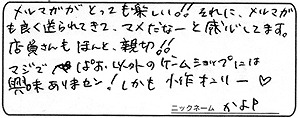 メルマガがとっても楽しい!! それに、メルマガ
も良く送られてきて、マメだなーと感心してます。
店員さんもほんと、親切!!
マジで ぱお 以外のゲームショップには
興味ありませン! しかも 小作オンリー♡
ニックネーム かよP